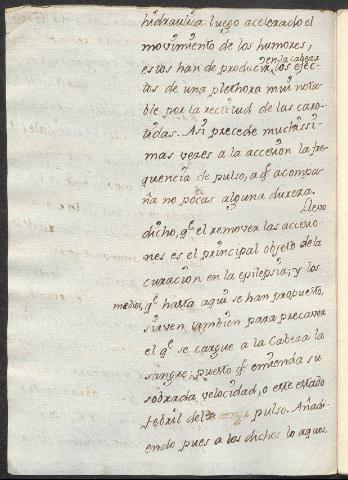 hidraulica: luego acelerado el
movimiento de los humores,
estos han de producir en la cabeza los efec-
tos de una plethora mui nota-
ble por la rectitud de las caro-
tidas. Asi precede muchissi-
mas vezes a la accesion la fre-
quencia de pulso, a qe acompa-
ña no pocas alguna dureza.
Llevo
dicho, qe el remover las accesio-
nes es el principal objeto de la
curacion en la epilepsia; y los
medios, qe hasta aqui se han propuesto,
sirven tambien para precaver
el qe se cargue a la Cabeza la
sangre; puesto qe emienda su
sobrada velocidad, o este estado
febril del pulso. Añadi-
endo pues a los dichos lo aquos,